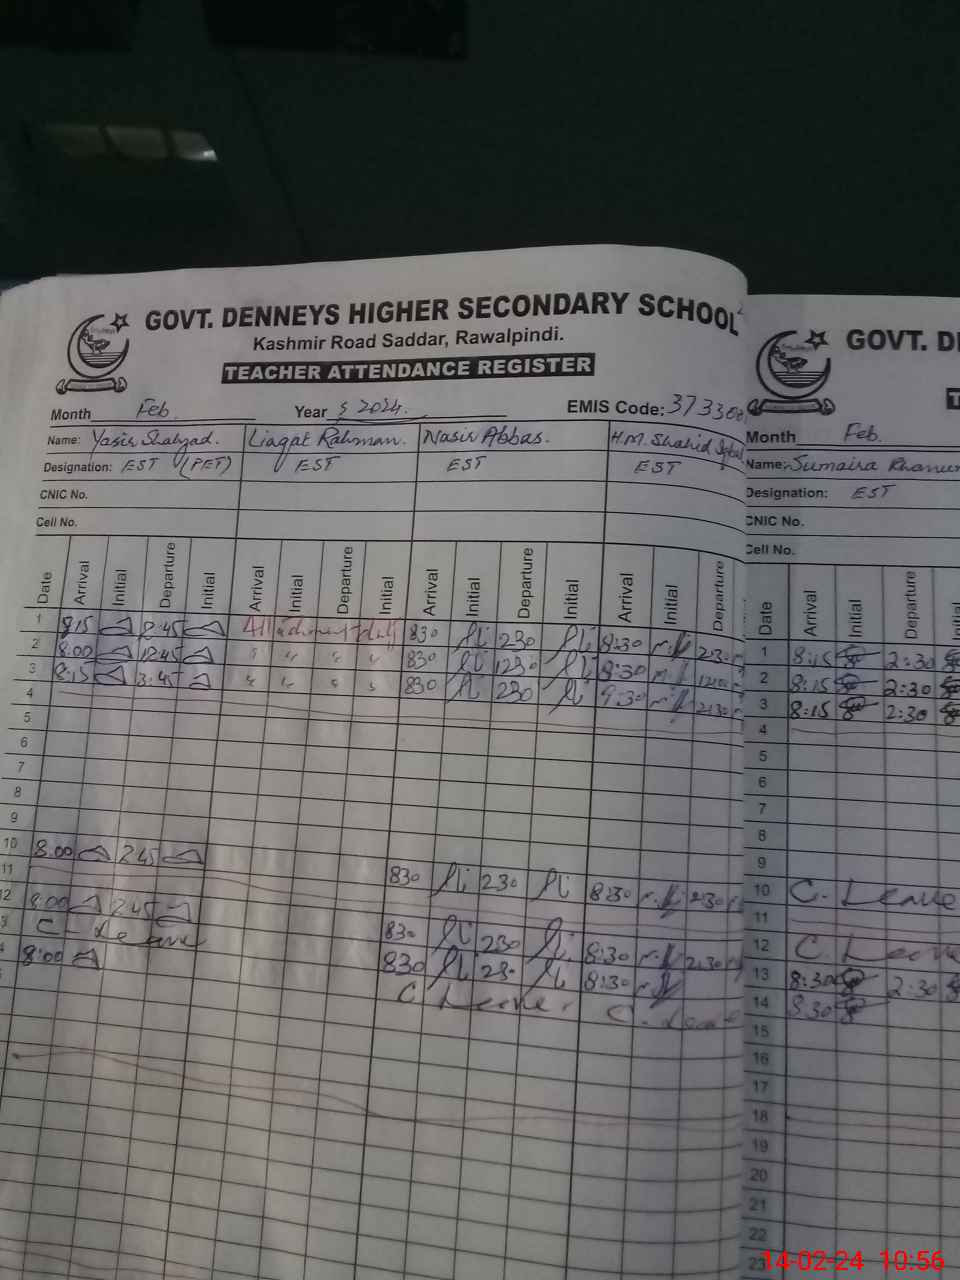 GOVT. DENNEYS HIGHER SECONDARY SCHOOL
Kashmir Road Saddar, Rawalpindi.
TEACHER ATTENDANCE REGISTER
Month Feb. Year 2024. EMIS Code:
Name: Yasir Shahzad. Liaqat Rahman. Nasir Abbas. H.M. Shahid Iqbal
Designation: EST (PET) EST EST EST
CNIC No.
Cell No.
Date Arrival Initial Departure Initial Arrival Initial Departure Initial Arrival Initial Departure Initial Arrival Initial Departure
1 8:15 2:45 830 230 8:30 2:30
2 8:00 12:45 " " " " 830 1230 8:30
3 8:15 " " 830 230 2:30
4
5
6
7
8
9
10 8.00 2.45 830 230 8:30 2:30
11
12 8:00 2.45 830 230 8:30 2:30
C. Leave 830 8:30
8:00 C Leave. C. Leave
GOVT. DE
Month Feb.
Name: Sumaira
Designation: EST
CNIC No.
Cell No.
Date Arrival Initial Departure Initial
1 8:15 2:30
2 8:15 2:30
3 8:15 2:30
4
5
6
7
8
9
10 C. Leave
11
12 C. Leave
13 8:30 2:30
14 8:30
15
16
17
18
19
20
21
22
23
14-02-24 10:56